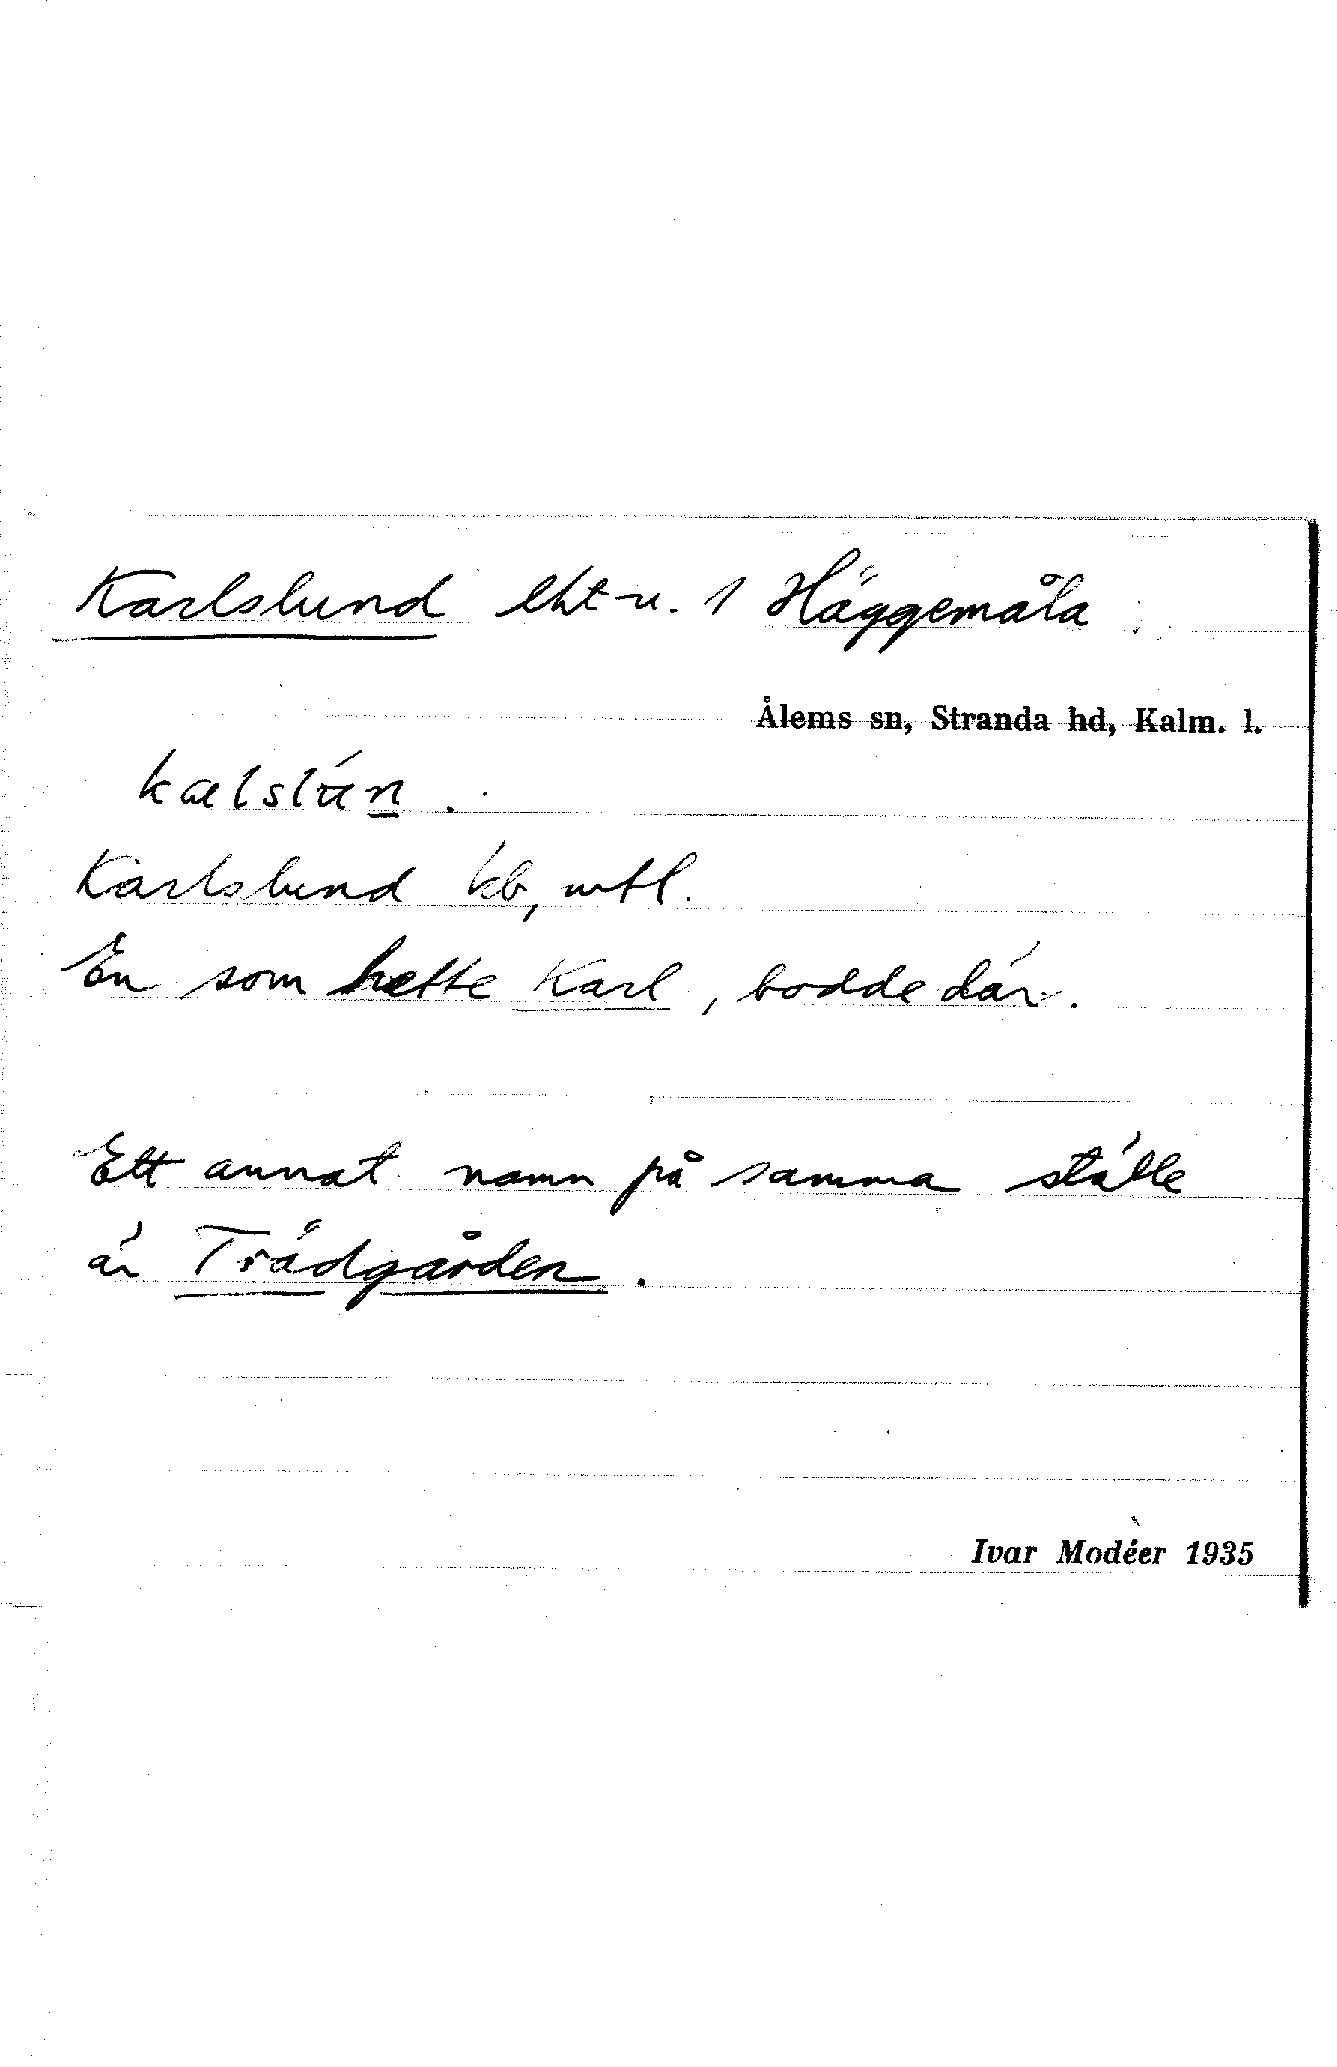 Karlslund lht u. 1 Häggemåla
Ålems sn, Stranda hd, Kalm. l.
Karlslund kb, mtl.
En som hette Karl, bodde där.
Ett annat namn på samma ställe
är Trädgården.
Ivar Modéer 1935